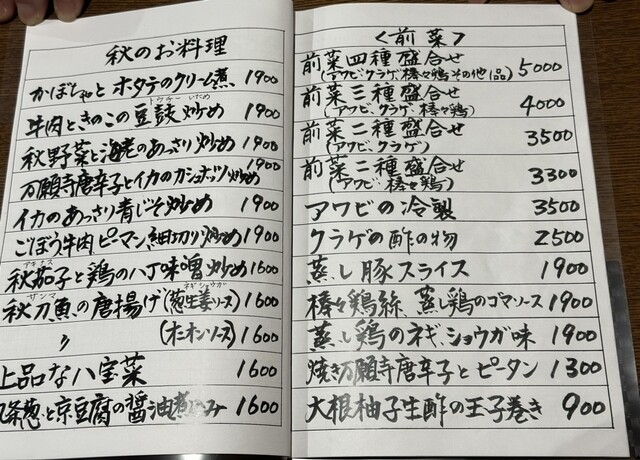 秋のお料理
かぼちゃとホタテのクリーム煮 1900
トウチー いため
牛肉ときのこの豆鼓炒め 1900
秋野菜と海老のあっさり炒め 1900
万願寺唐辛子とイカのカシューナッツ炒め 1900
イカのあっさり青じそ炒め 1900
ごぼう、牛肉、ピーマン、細切り炒め 1900
アキナス
秋茄子と鶏の八丁味噌炒め 1600
サンマ ネギショウガ
秋刀魚の唐揚げ(葱生姜ソース) 1600
〃 (オニオンソース) 1600
上品な八宝菜 1600
九条葱と京豆腐の醤油煮込み 1600
<前菜>
前菜四種盛合せ 5000
(アワビ、クラゲ、棒々鶏 その他1品)
前菜三種盛合せ 4000
(アワビ、クラゲ、棒々鶏)
前菜二種盛合せ 3500
(アワビ、クラゲ)
前菜二種盛合せ 3300
(アワビ、棒々鶏)
アワビの冷製 3500
クラゲの酢の物 2500
蒸し豚スライス 1900
棒々鶏絲、蒸し鶏のゴマソース 1900
蒸し鶏のネギ、ショウガ味 1900
焼き万願寺唐辛子とピータン 1300
大根柚子生酢の王子巻き 900